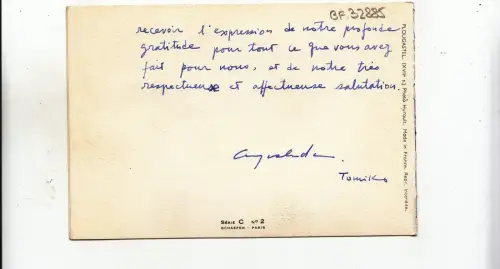 BF.32885
recevoir l'expression de notre profonde
gratitude pour tout ce que vous avez
fait pour nous, et de notre très
respectueuse et affectueuse salutation.
Tomiko
Série C N° 2
SCHAEFER - PARIS
PLOUGASTEL (XVIIe s.) Photo Hyrault. Made in France. Repr. interdite.